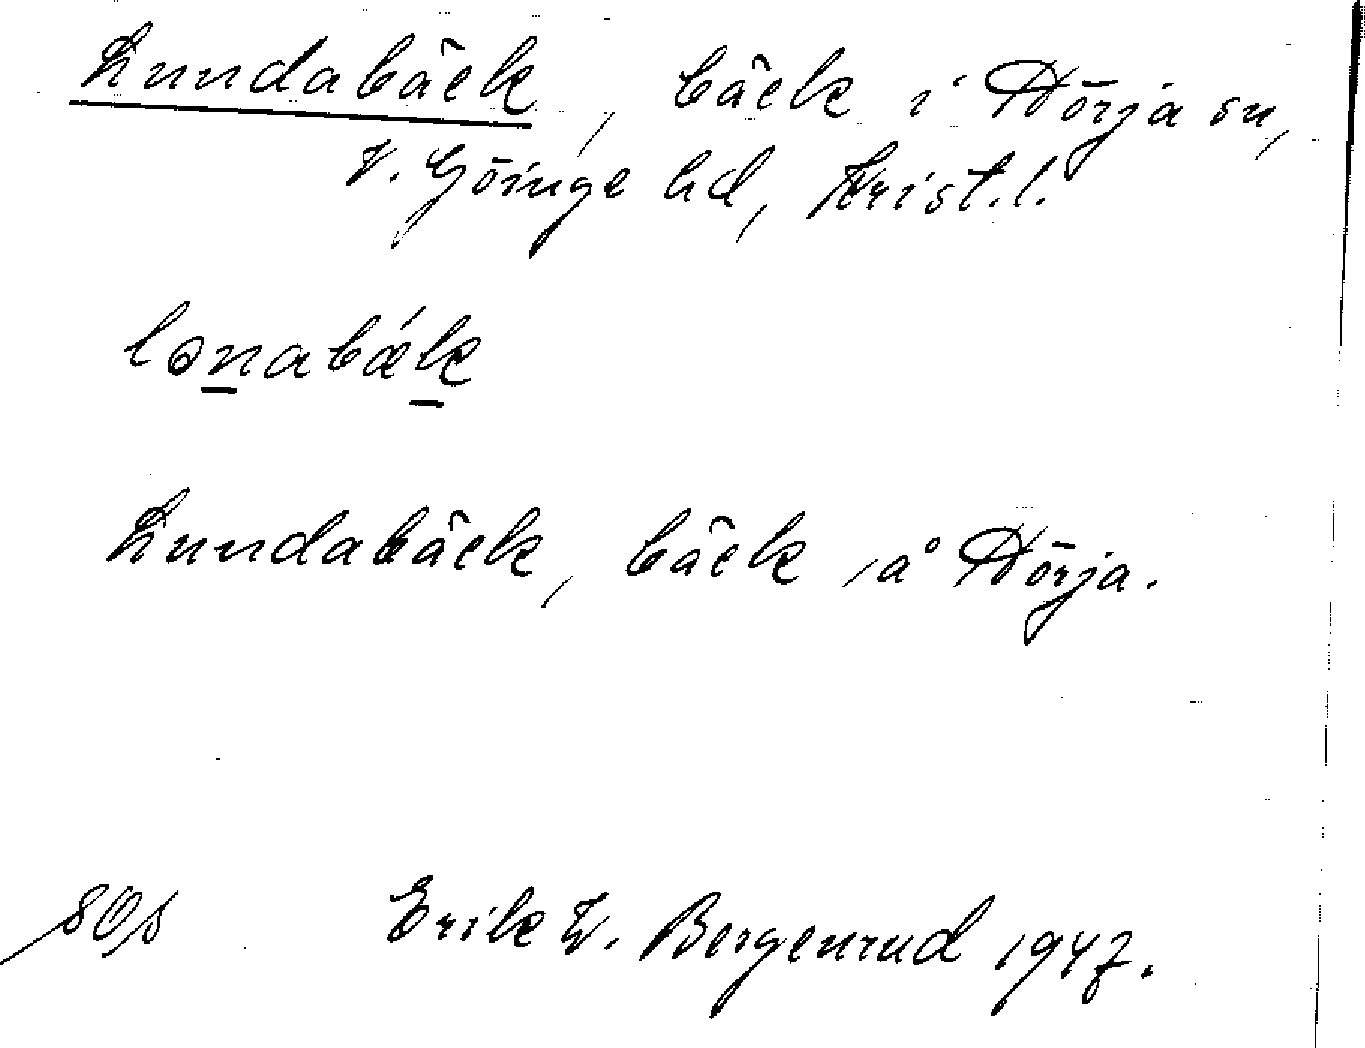 Lundabäck, bäck i Nörja sn,
V. Göinge hd, Krist. l.
lɘnabǽk
Lundabäck, bäck å Nörja.
Erik W. Bergenrud 1947.